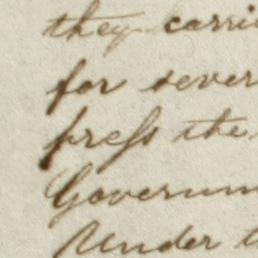 they carri
for sever
press the
Governm
Under t